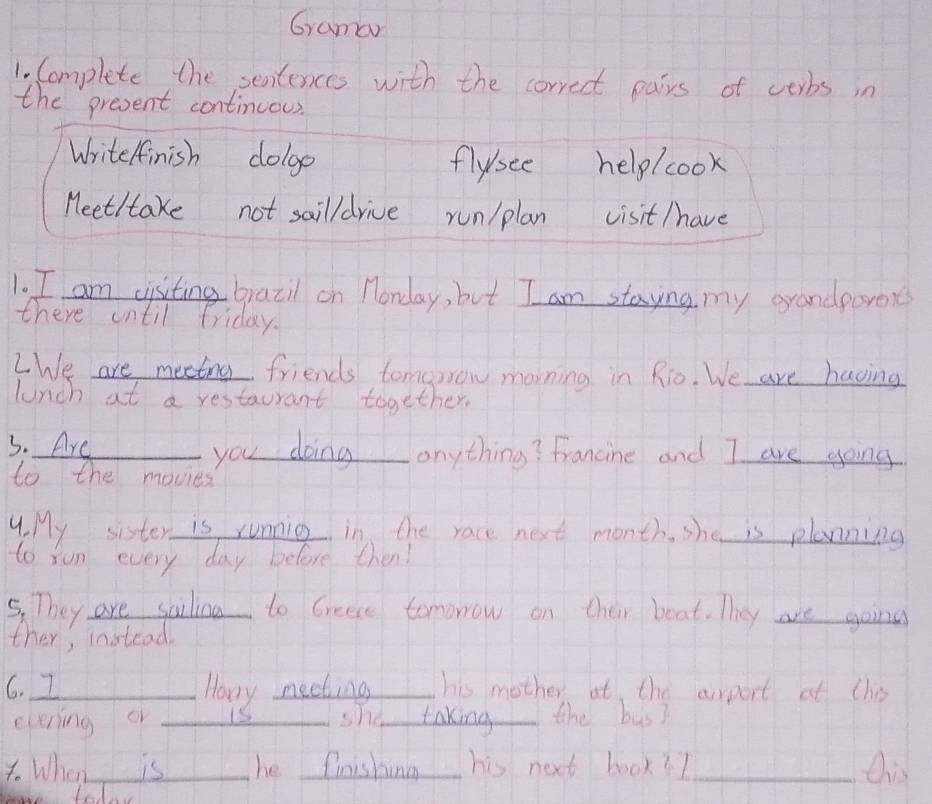 Gramar
1. Complete the sentences with the correct pairs of verbs in
the present continuous.
Write/finish do/go fly/see help/cook
Meet/take not sail/drive run/plan visit/have
1. I am visiting brazil on Monday, but I am staying my grandparents
there until friday.
2. We are meeting friends tomorrow morning in Rio. We are having
lunch at a restaurant together.
3. Are you doing anything? Francine and I are going
to the movies
4. My sister is runnig in the race next month. She is planning
to run every day before then!
5. They are sailing to Greece tomorrow on their boat. They are going
ther, instead.
6. I Harry meeting his mother at the airport at this
evening or is she taking the bus?
7. When is he finishing his next book? I this
today